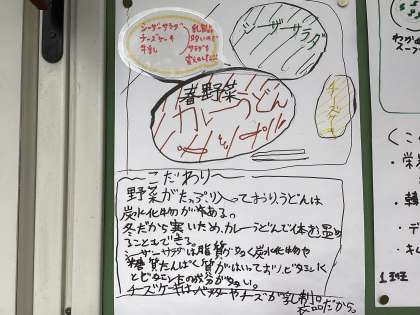 シーザーサラダ
チーズケーキ
牛乳
乳製品
多いので
サラダを
シーザーサラダ
春野菜
カレーうどん
チーズケーキ
〜こだわり〜
野菜がたっぷり入っており、うどんは
炭水化物がある。
冬だから寒いため、カレーうどんで体を温め
ることもできる。
シーザーサラダは脂質が多く炭水化物や
糖質たんぱく質がはいっており、ビタミンK
とビタミン
の成分が多い。
チーズケーキはバターやチーズが乳製
品だから。
わかめ
スープ
くこ
・栄
・韓
・デ
・キ
1班